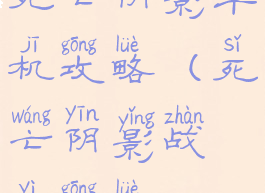 死亡阴影单
jī gōng lüè sǐ
机攻略（死
wáng yīn yǐng zhàn
亡阴影战
yì gōng lüè